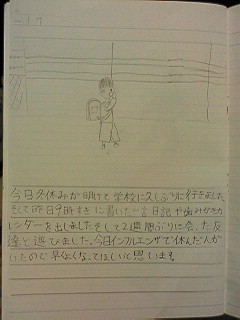 今日冬休みが明けて学校に久しぶりに行きました。
そして昨日9時すぎに書いた一言日記や歯みがきカ
レンダーを出しました。そして2週間ぶりに会った友
達と遊びました。今日インフルエンザで休んだ人が
いたので早くよくなってほしいと思います。